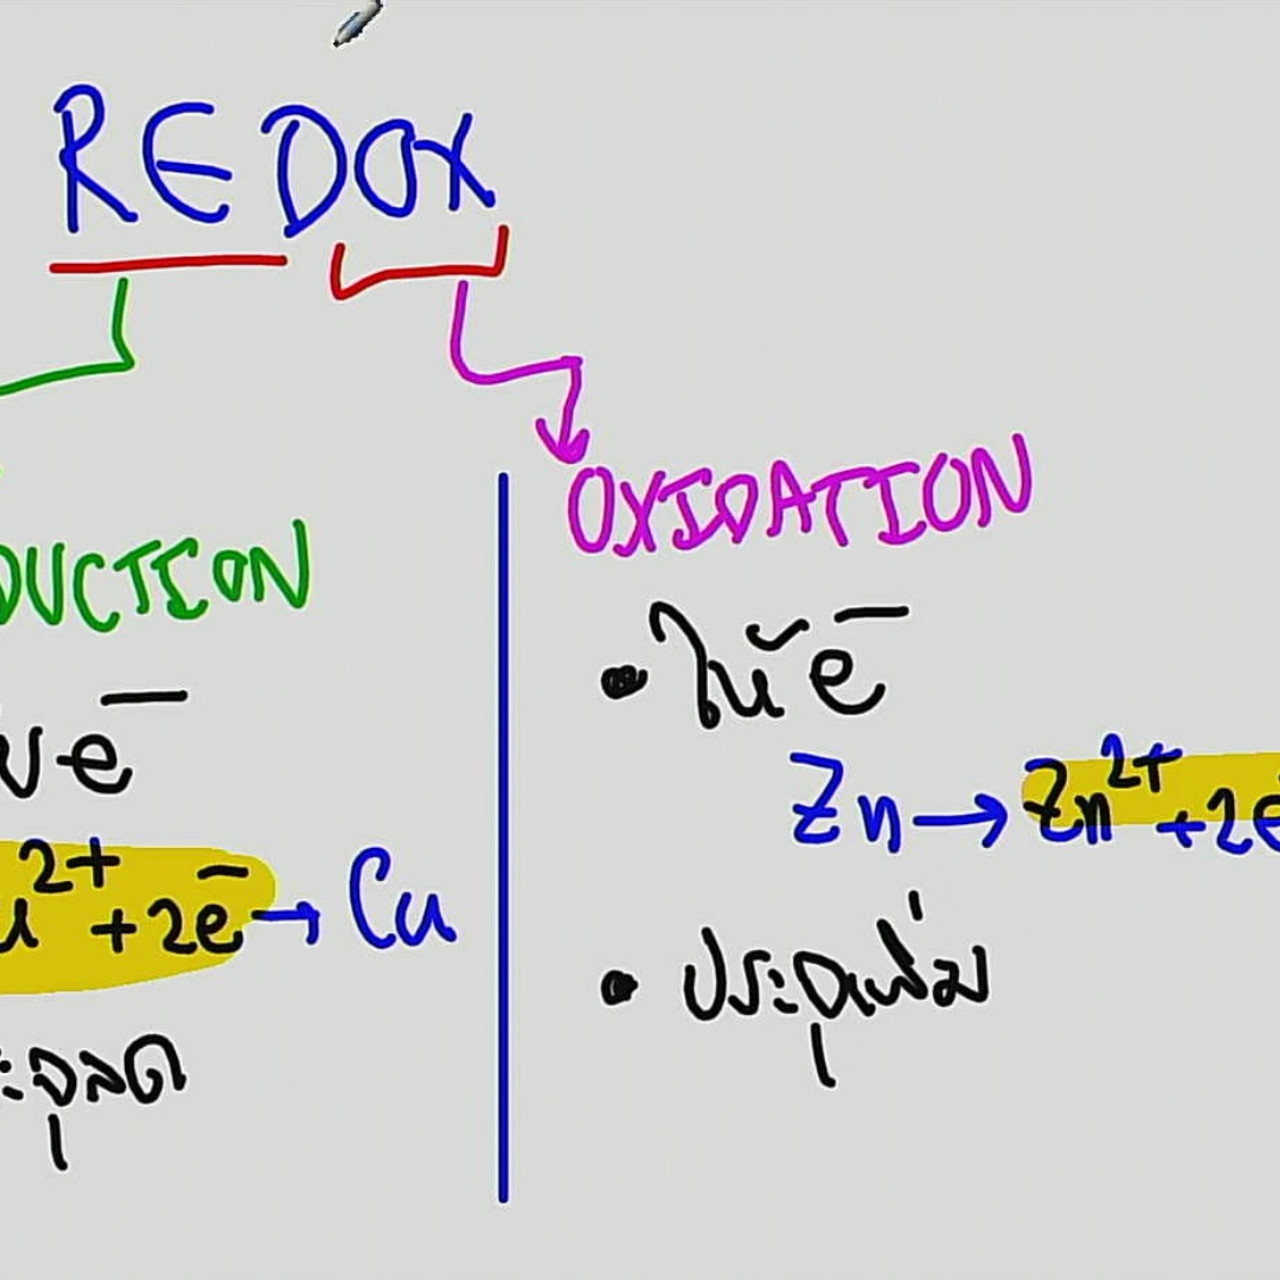 REDOX
DUCTION
บe⁻
u²⁺ + 2e⁻ → Cu
ะจุลด
OXIDATION
• ให้ e⁻
Zn → Zn²⁺ + 2e⁻
• ประจุเพิ่ม